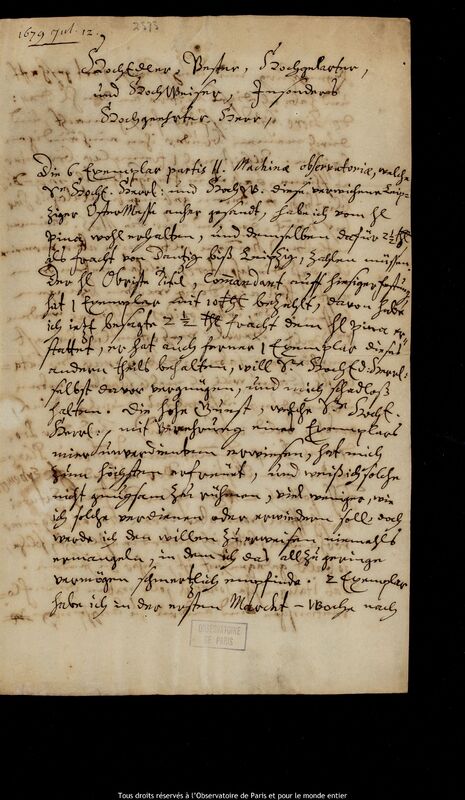 1679 Jul. 12.
2373
HochEdler, Vester, Hochgelarter,
und HochWeiser, Insonders
Hochgeehrter Herr,
Die 6 Exemplar partis II. Machinæ observatoriæ, welche
diese verwichene Leip-
ziger OsterMesse anher gesandt, habe ich vom Hl
wohl erhalten, und demselben dafür 2½ thl
als fracht von Dantzig biß Leipzig, zahlen müssen.
Der Hl Obriste Titel, Commandant auff hiesiger Festung
hat 1 Exemplar mit 10 thl bezahlt, davon habe
ich itzt besagte 2½ thl fracht dem Hl er-
stattet, er hat auch ferner 1 Exemplar dieses
andern theils behalten, will Sr HochEd: Herrl.
selbst davor vergnügen, und mich schadloß
halten. Die hohe Gunst, welche Sr HochE.
Herrl., mit Verehrung eines Exemplars
mier unverdientem erwiesen, hat mich
zum höchsten erfreuet, und weiß ich solche
nicht gnugsam zu rühmen, viel weniger, wie
ich solche verdienen oder erwiedern soll, doch
werde ich den willen zu erweisen niemahls
ermangeln, in dem ich das allzu geringe
vermögen schmertzlich empfinde. 2 Exemplar
habe ich in der ersten Marckt-Woche nach
OBSERVATOIRE
DE PARIS
Tous droits réservés à l'Observatoire de Paris et pour le monde entier